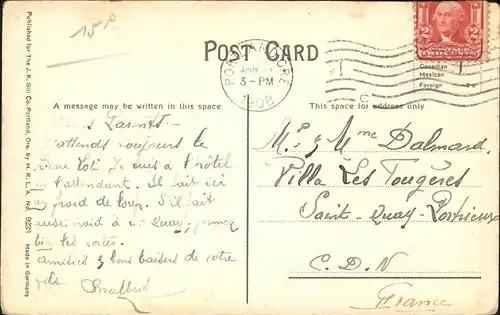 15 P
POST CARD
PORTLAND, ORE
JAN
3-PM
1908
2 POSTAGE 2
TWO CENTS
Canadian
Mexican
Foreign 2c
A message may be written in this space
This space for address only
Parents -
J'attends toujours le
Je suis à l'hôtel
l'attendant. Il fait ici
un froid de loup. S'il fait
aussi froid à St Quay, fermez
bien les portes.
amitiés & bons baisers de votre
fils.
Mr & Mme Dalmard
Villa Les Fougères
Saint-Quay-Portrieux
C. D. N
France
Published for The J. K. Gill Co. Portland, Ore. by M. R. L. A. No. 9231 Made in Germany